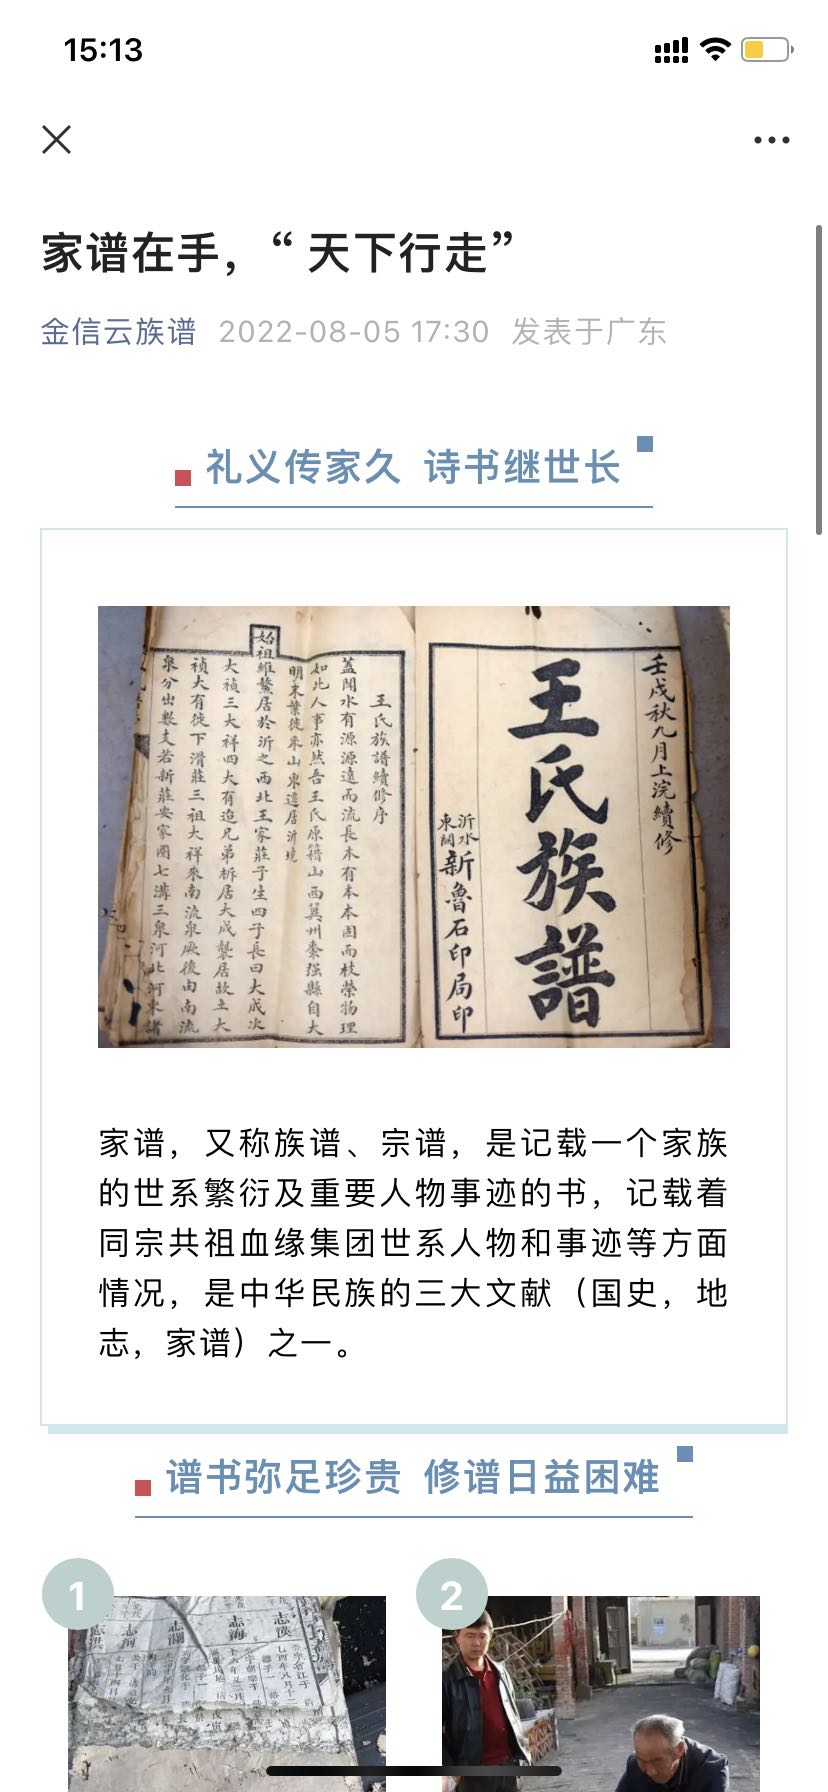 15:13
家谱在手，“ 天下行走”
金信云族谱 2022-08-05 17:30 发表于广东
礼义传家久 诗书继世长
壬戌秋九月上浣續修
王氏族譜
沂水
東關
新魯石印局印
王氏族譜續修序
蓋聞水有源源遠而流長木有本本固而枝榮物理
如此人事亦然吾王氏原籍山西冀州棗强縣自大
明末業徙來山東遷居沂境
始祖維鰲居於沂之西北王家莊子生四子長曰大成次
大禎三大祥四大有迨兄弟析居大成襲居故土大
禎大有徙下滑莊三祖大祥來南流泉厥後由南流
泉分出數支若新莊安家圈七溝三泉河北河東諸
家谱，又称族谱、宗谱，是记载一个家族
的世系繁衍及重要人物事迹的书，记载着
同宗共祖血缘集团世系人物和事迹等方面
情况，是中华民族的三大文献（国史，地
志，家谱）之一。
谱书弥足珍贵 修谱日益困难
1
志瑛
志海
志瀾
志河
志洪
2